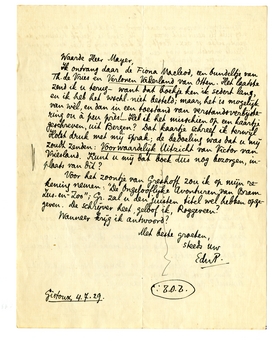 Waarde Heer Mayer,
Ik ontvang daar de Fiona Macleod, en bundeltje van
Th. de Vries en Verloren Vaderland van Otten. Het laatste
zend ik u terug - want dat boekje heb ik sedert lang,
en ik het het wecht niet besteld; maar, het is mogelijk
van wél, en dan in een toestand van verstandsverbijste-
ring en à pen prie! Heb ik het misschien op een kaartje
geschreven, uit Bergen? Dat kaartje schreef ik terwijl
Holst druk met mij sprak; de bedoeling was dat u mij
zoudt zenden: Voorwaardelijk Uitzicht van Victor van
Vriesland. Kunt u mij dat boek dus nog bezorgen, in
plaats van dit?
Voor het zoontje van Greshoff zou ik op mijn re-
kening nemen: "De Ongelooflijke Avonturen van Bram
Zus-en-Zoo"; Gr. zal u den juisten titel wel hebben opge-
geven. De schrijver heet, geloof ik, Roggeveen?
Wanneer krijg ik antwoord?
Met beste groeten,
steeds uw
EduP.
Gistoux, 4.7.29.